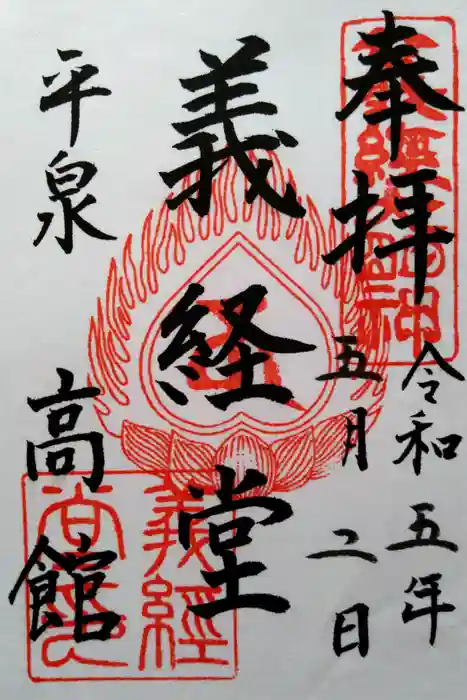 奉拝
令和五年
五月二日
義経堂
平泉
高館